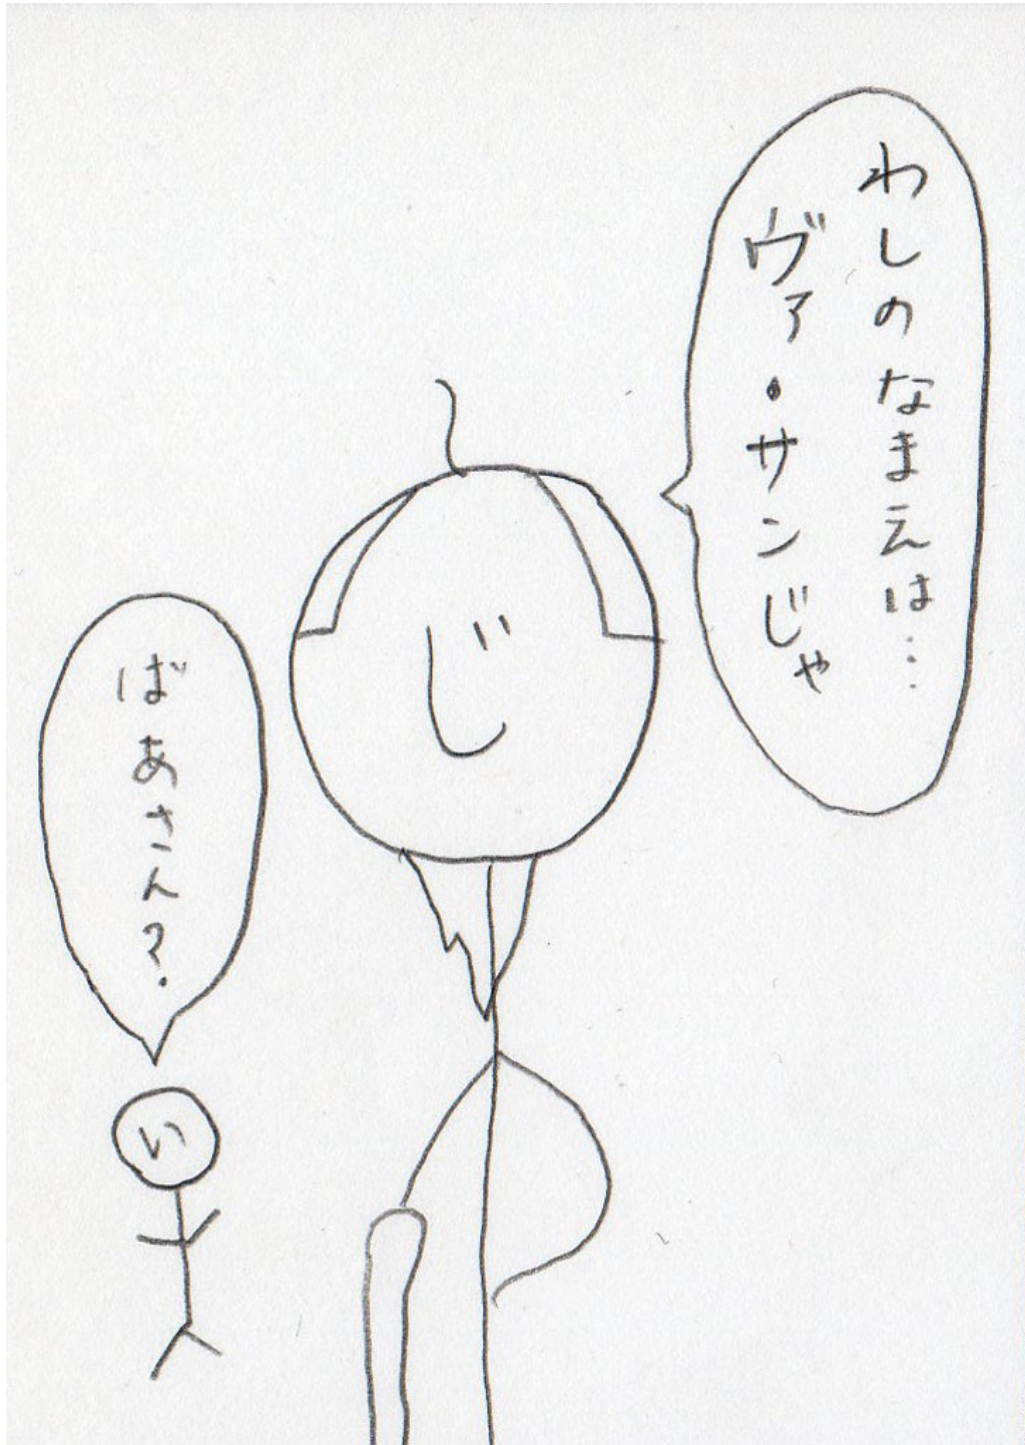 わしのなまえは…
ヴァ・サンじゃ
じ
ばあさん?
い